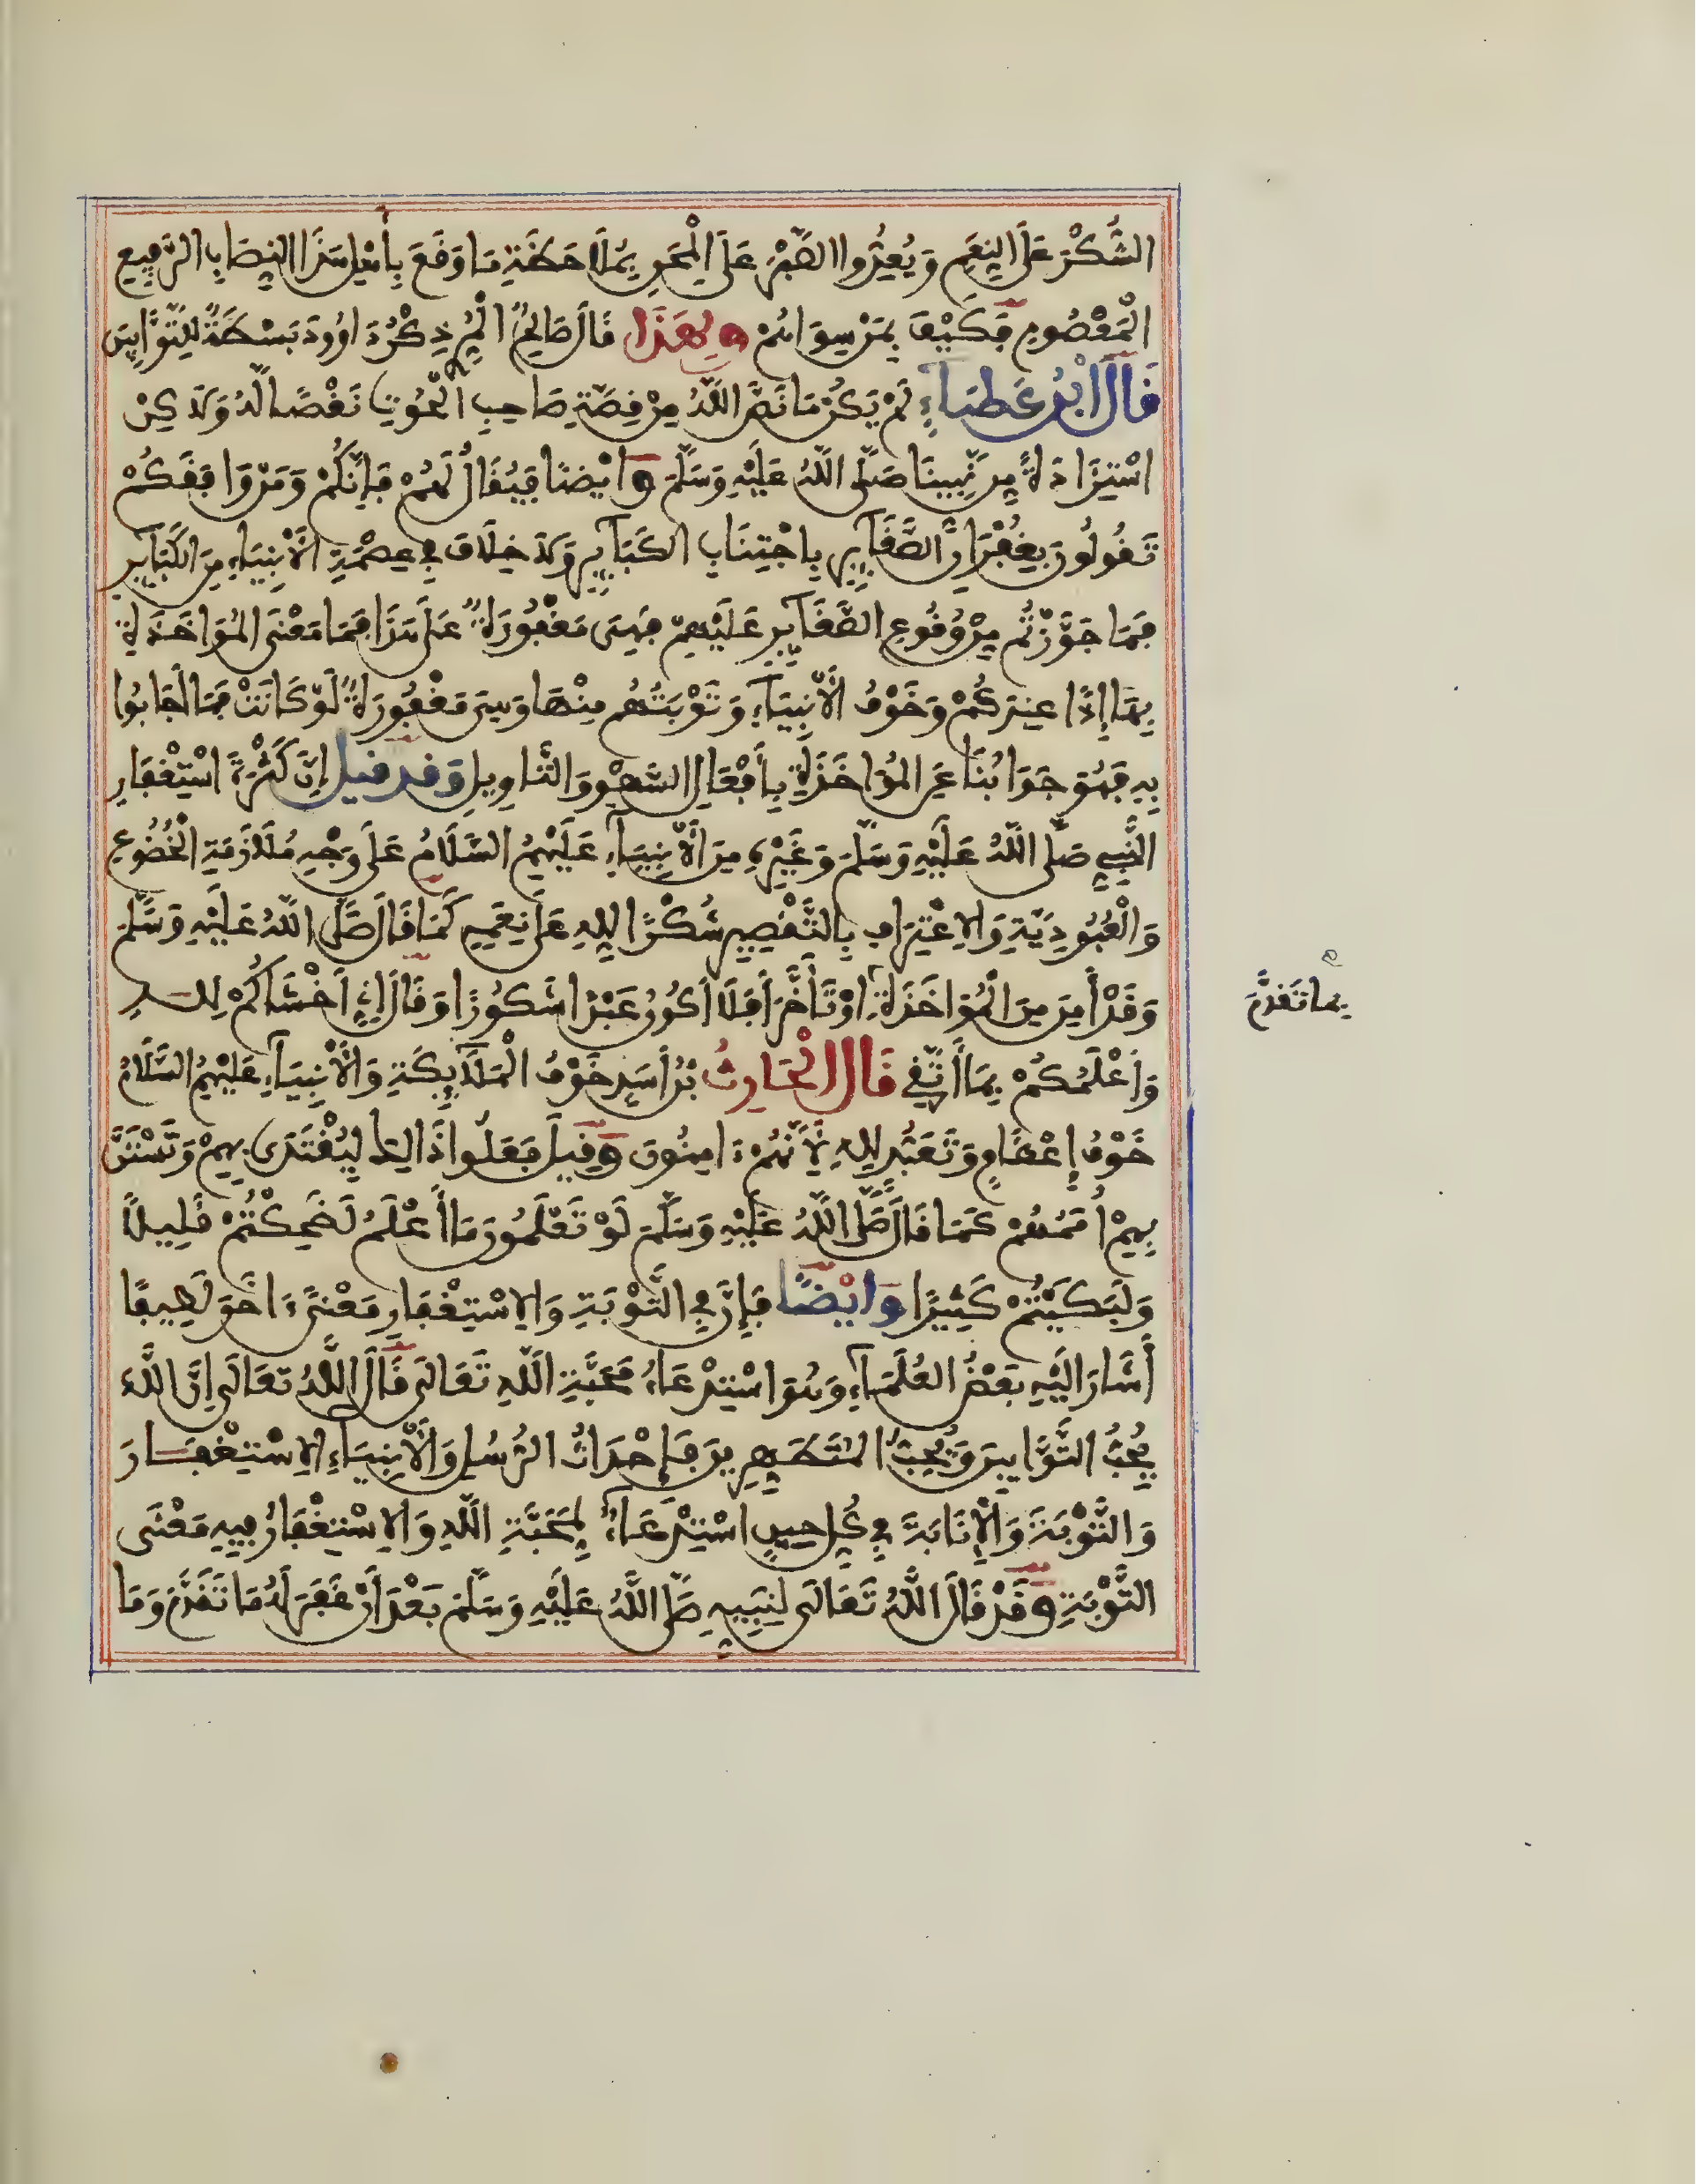 الشُّكْرَ عَلَى النِّعَمِ وَيُعِدُّوا الصَّبْرَ عَلَى الْمِحَنِ بِمُلَاحَظَةِ مَا وَقَعَ بِأَهْلِ هَذَا النِّصَابِ الرَّفِيعِ
الْمَعْصُومِ فَكَيْفَ بِمَنْ سِوَاهُمْ وَلِهَذَا قَالَ صَالِحٌ الْمُرِّيُّ ذِكْرُ دَاوُودَ بَسْطَةٌ لِلتَّوَّابِينَ
قَالَ ابْنُ عَطَاءٍ لَمْ يَكُنْ مَا نَصَّ اللَّهُ مِنْ قِصَّةِ صَاحِبِ الْحُوتِ نَقْصًا لَهُ وَلَكِنْ
اسْتِزَادَةً مِنْ نَبِيِّنَا صَلَّى اللَّهُ عَلَيْهِ وَسَلَّمَ وَايْضًا فَيُقَالُ لَهُمْ فَإِنَّكُمْ وَمَنْ وَافَقَكُمْ
تَقُولُونَ بِغُفْرَانِ الصَّغَآئِرِ بِاجْتِنَابِ الكَبَآئِرِ وَلَا خِلَافَ فِي عِصْمَةِ الْأَنْبِيَاءِ مِنَ الْكَبَآئِرِ
فَمَا جَوَّزْتُمْ مِنْ وُقُوعِ الصَّغَآئِرِ عَلَيْهِمْ فَهِيَ مَغْفُورَةٌ عَلَى هَذَا فَمَا مَعْنَى الْمُؤَاخَذَةِ
بِهَا إِذًا عِنْدَكُمْ وَخَوْفُ الْأَنْبِيَآءِ وَتَوْبَتُهُمْ مِنْهَا وَهِيَ مَغْفُورَةٌ لَوْ كَانَتْ فَمَا أَجَابُوا
بِهِ فَهُوَ جَوَابُنَا عَنِ الْمُؤَاخَذَةِ بِأَفْعَالِ السَّهْوِ وَالتَّاوِيلِ وَقَدْ قِيلَ إِنَّ كَثْرَةَ اسْتِغْفَارِ
النَّبِيِّ صَلَّى اللَّهُ عَلَيْهِ وَسَلَّمَ وَغَيْرِهِ مِنَ الْأَنْبِيَآءِ عَلَيْهِمُ السَّلَامُ عَلَى وَجْهِ مُلَازَمَةِ الْخُضُوعِ
وَالْعُبُودِيَّةِ وَالِاعْتِرَافِ بِالتَّقْصِيرِ شُكْرًا لِلهِ عَلَى نِعَمِهِ كَمَا قَالَ صَلَّى اللَّهُ عَلَيْهِ وَسَلَّمَ
وَقَدْ أَمِنَ مِنَ الْمُؤَاخَذَةِ اوْ تَأَخَّرَ أَفَلَا أَكُونُ عَبْدًا شَكُورًا وَقَالَ إِنِّي أَخْشَاكُمْ لِلهِ
بِمَا تَقَدَّمَ
وَأَعْلَمُكُمْ بِمَا أَتَّقِي قَالَ الْحَارِثُ بْنُ أَسَدٍ خَوْفُ الْمَلَآئِكَةِ وَالْأَنْبِيَآءِ عَلَيْهِمُ السَّلَامُ
خَوْفُ إِعْظَامٍ وَتَعَبُّدٍ لِلهِ لِأَنَّهُمْ ءَامِنُونَ وَقِيلَ فَعَلُوا ذَالِكَ لِيُقْتَدَى بِهِمْ وَتَسْتَنَّ
بِهِمْ أُمَمُهُمْ كَمَا قَالَ صَلَّى اللَّهُ عَلَيْهِ وَسَلَّمَ لَوْ تَعْلَمُونَ مَا أَعْلَمُ لَضَحِكْتُمْ قَلِيلًا
وَلَبَكَيْتُمْ كَثِيرًا وَايْضًا فَإِنَّ فِي التَّوْبَةِ وَالِاسْتِغْفَارِ مَعْنًى ءَاخَرَ لَطِيفًا
أَشَارَ إِلَيْهِ بَعْضُ الْعُلَمَآءِ وَهُوَ اسْتِدْعَاءُ مَحَبَّةِ اللَّهِ تَعَالَى قَالَ اللَّهُ تَعَالَى إِنَّ اللَّهَ
يُحِبُّ التَّوَّابِينَ وَيُحِبُّ الْمُتَطَهِّرِينَ فَإِحْدَاثُ الرُّسُلِ وَالْأَنْبِيَآءِ الِاسْتِغْفَارَ
وَالتَّوْبَةَ وَالْإِنَابَةَ فِي كُلِّ حِينٍ اسْتِدْعَآءٌ لِمَحَبَّةِ اللَّهِ وَالِاسْتِغْفَارُ فِيهِ مَعْنَى
التَّوْبَةِ وَقَدْ قَالَ اللَّهُ تَعَالَى لِنَبِيِّهِ صَلَّى اللَّهُ عَلَيْهِ وَسَلَّمَ بَعْدَ أَنْ غَفَرَ لَهُ مَا تَقَدَّمَ وَمَا